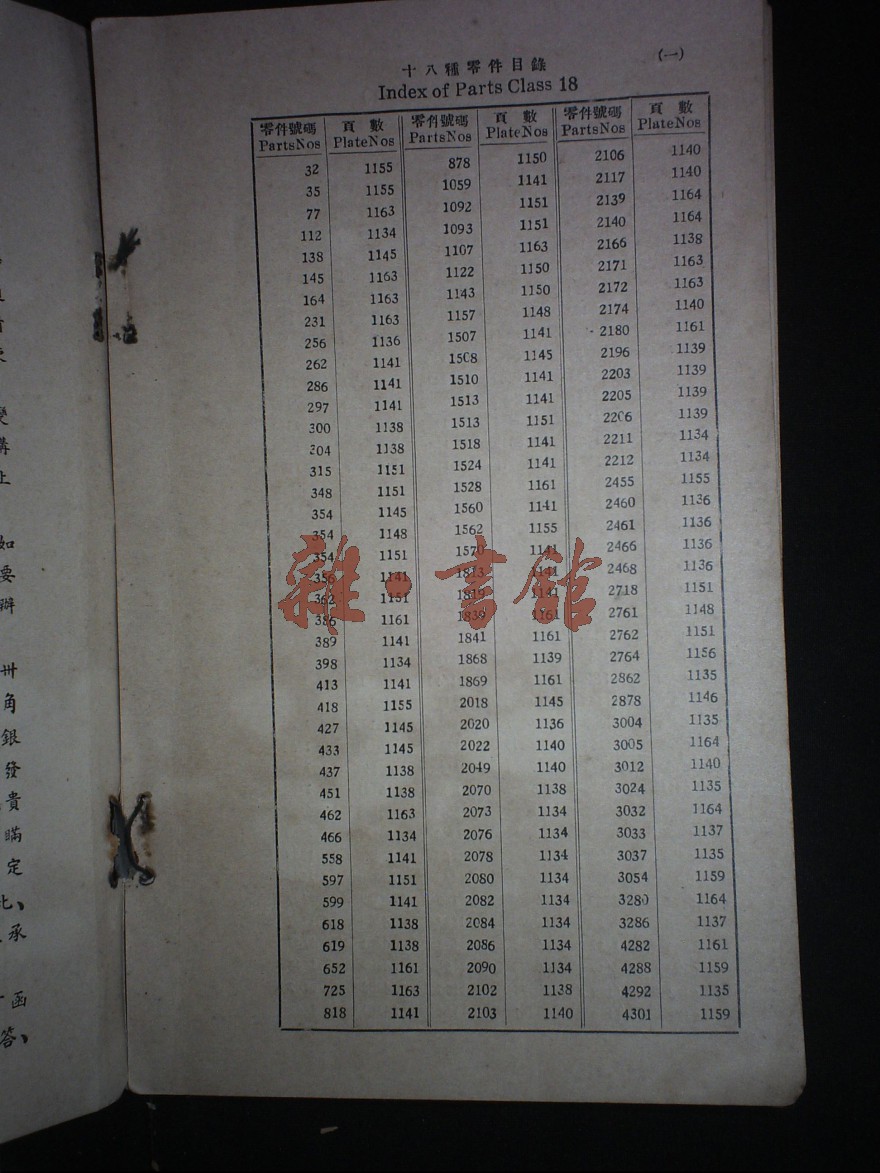 十八種零件目錄
(一)
Index of Parts Class 18
零件號碼 頁數 零件號碼 頁數 零件號碼 頁數
PartsNos PlateNos PartsNos PlateNos PartsNos PlateNos
32 1155 878 1150 2106 1140
35 1155 1059 1141 2117 1140
77 1163 1092 1151 2139 1164
112 1134 1093 1151 2140 1164
138 1145 1107 1163 2166 1138
145 1163 1122 1150 2171 1163
164 1163 1143 1150 2172 1163
231 1163 1157 1148 2174 1140
256 1136 1507 1141 2180 1161
262 1141 1508 1145 2196 1139
286 1141 1510 1141 2203 1139
297 1141 1513 1141 2205 1139
300 1138 1513 1151 2206 1139
304 1138 1518 1141 2211 1134
315 1151 1524 1141 2212 1134
348 1151 1528 1161 2455 1155
354 1145 1560 1141 2460 1136
354 1148 1562 1155 2461 1136
354 1151 1570 1141 2466 1136
356 1141 1813 1141 2468 1136
362 1151 1819 1141 2718 1151
386 1161 1839 1161 2761 1148
389 1141 1841 1161 2762 1151
398 1134 1868 1139 2764 1156
413 1141 1869 1161 2862 1135
418 1155 2018 1145 2878 1146
427 1145 2020 1136 3004 1135
433 1145 2022 1140 3005 1164
437 1138 2049 1140 3012 1140
451 1138 2070 1138 3024 1135
462 1163 2073 1134 3032 1164
466 1134 2076 1134 3033 1137
558 1141 2078 1134 3037 1135
597 1151 2080 1134 3054 1159
599 1141 2082 1134 3280 1164
618 1138 2084 1134 3286 1137
619 1138 2086 1134 4282 1161
652 1161 2090 1134 4288 1159
725 1163 2102 1138 4292 1135
818 1141 2103 1140 4301 1159
雜·書館
如要辦
角銀發貴
瞞定
承
函
答、